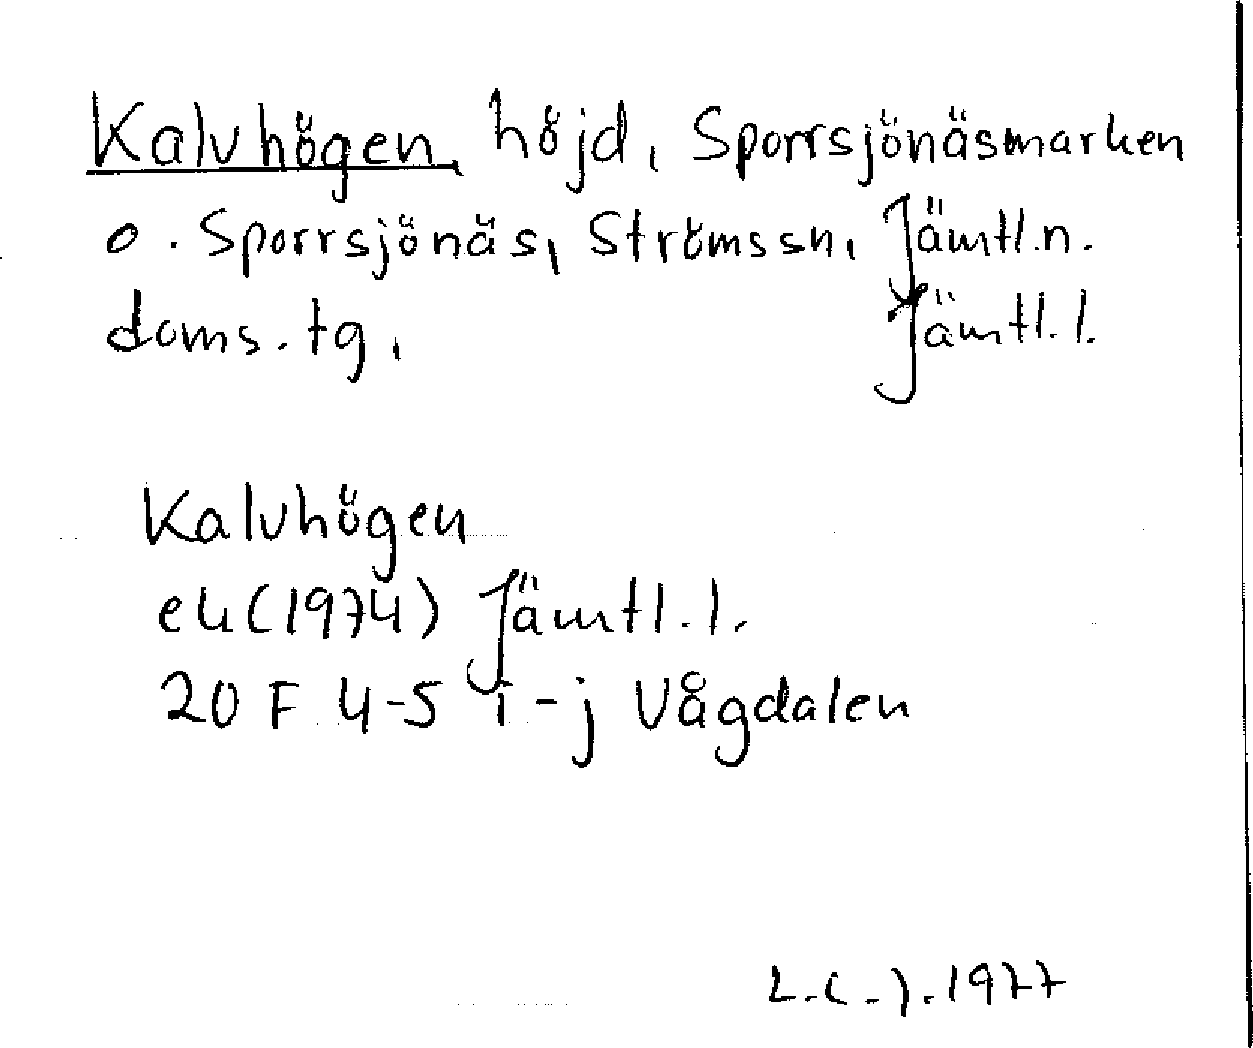 Kalvhögen, höjd, Sporrsjönäsmarken
o. Sporrsjönäs, Ströms sn, Jämtl.n.
doms. tg, Jämtl.l.
Kalvhögen
ek (1974) Jämtl.l.
20 F 4-5 i-j Vågdalen
1977